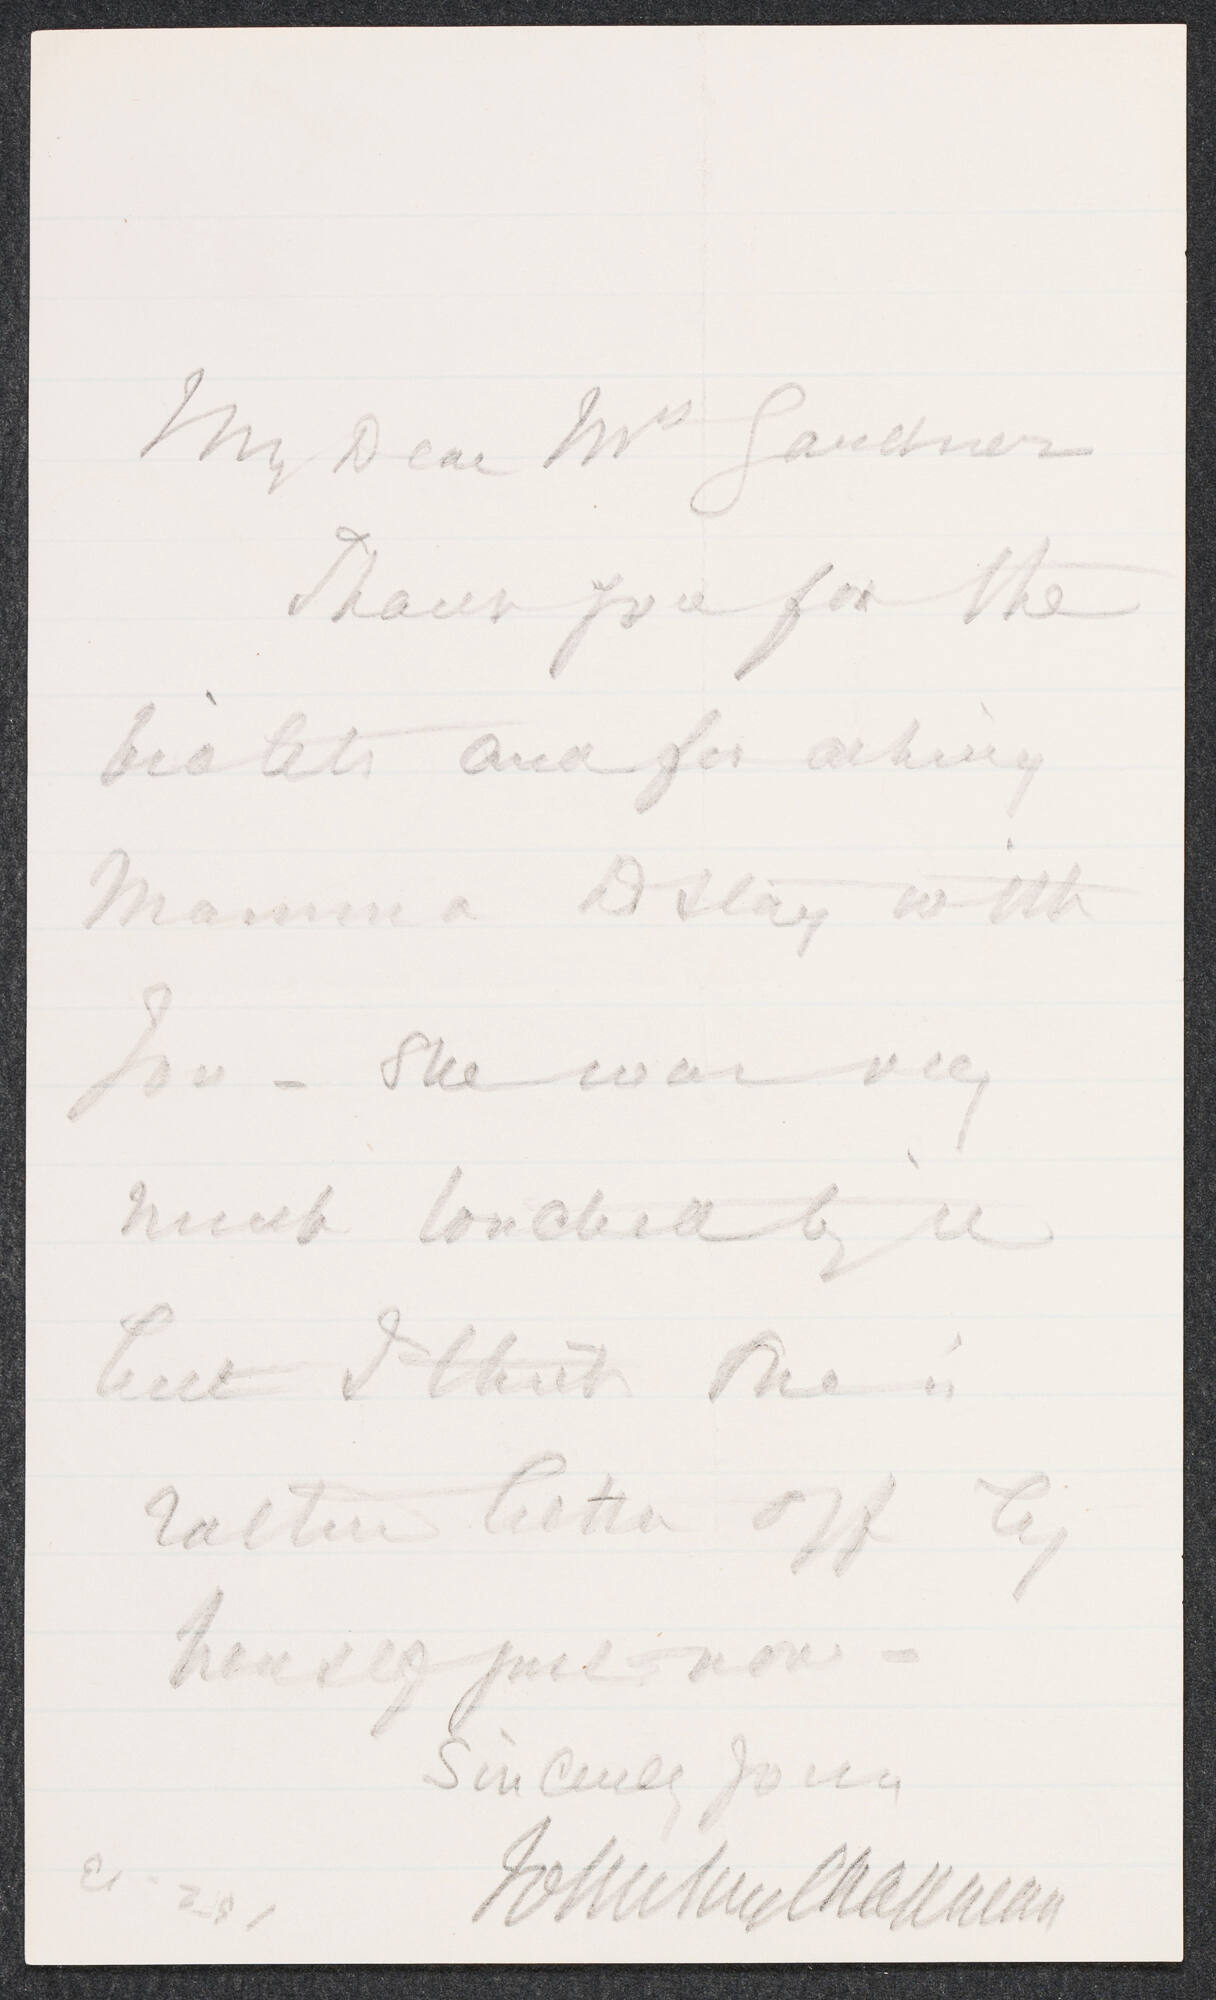 My Dear Mrs Gardner
Thank you for the
violets and for asking
Mamma to stay with
You - She was very
much touched by it
but I think she is
rather better off by
herself just now -
Sincerely Yours
John Jay Chapman